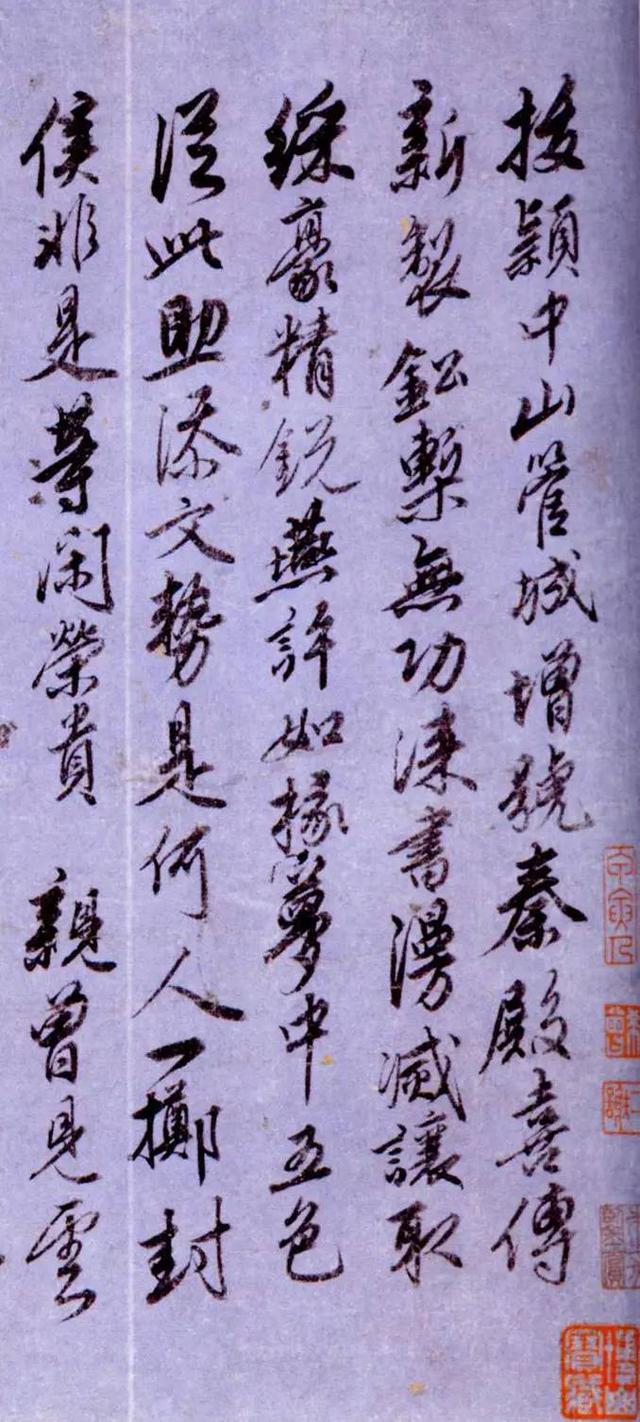 拔颖中山管城增號秦殿喜傳
新製鈆槧無功漆書漫滅讓取
綵豪精銳燕許如椽夢中五色
從此助添文勢是何人一擲封
侯非是等閑榮貴親曾見雲